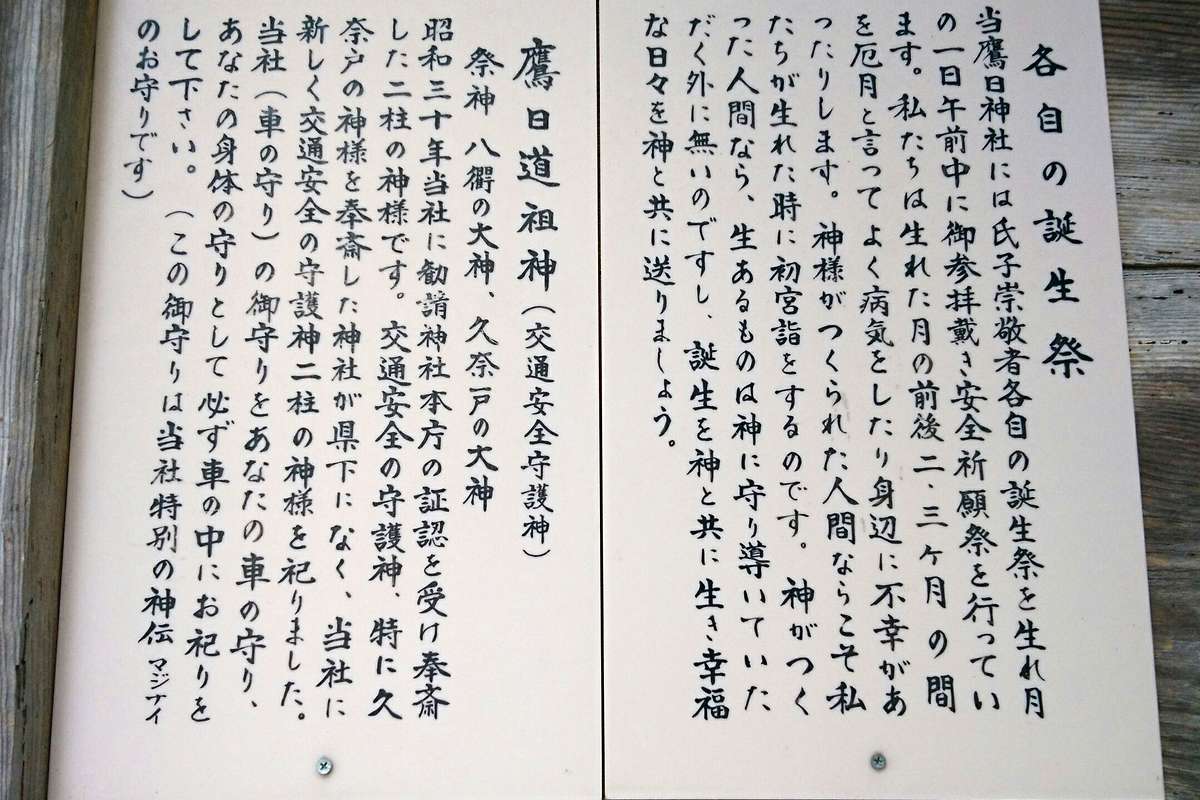 各自の誕生祭
当鷹日神社には氏子崇敬者各自の誕生祭を生れ月
の一日午前中に御参拝戴き安全祈願祭を行ってい
ます。私たちは生れた月の前後二、三ヶ月の間
を厄月と言ってよく病気をしたり身辺に不幸があ
ったりします。神様がつくられた人間ならこそ私
たちが生れた時に初宮詣をするのです。神がつく
った人間なら、生あるものは神に守り導いていた
だく外に無いのですし、誕生を神と共に生き幸福
な日々を神と共に送りましょう。
鷹日道祖神（交通安全守護神）
祭神 八衢の大神、久奈戸の大神
昭和三十年当社に勧請神社本庁の証認を受け奉斎
した二柱の神様です。交通安全の守護神、特に久
奈戸の神様を奉斎した神社が県下になく、当社に
新しく交通安全の守護神二柱の神様を祀りました。
当社（車の守り）の御守りをあなたの車の守り、
あなたの身体の守りとして必ず車の中にお祀りを
して下さい。（この御守りは当社特別の神伝マジナイ
のお守りです）